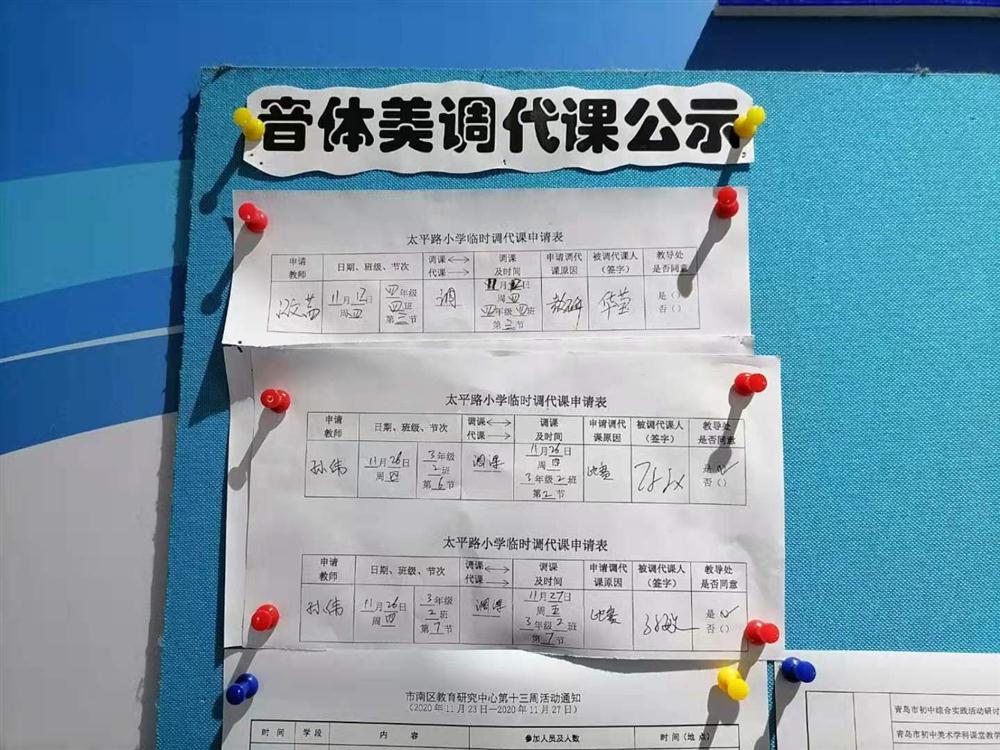 音体美调代课公示
太平路小学临时调代课申请表
申请教师 日期、班级、节次 调课⟷ 代课⟶ 调课及时间 申请调代课原因 被调代课人(签字) 教导处是否同意
11月12日 周四 四年级 四班 第三节 调 11月12日 周四 四年级四班 第三节 教研 华莹 是() 否()
太平路小学临时调代课申请表
申请教师 日期、班级、节次 调课⟷ 代课⟶ 调课及时间 申请调代课原因 被调代课人(签字) 教导处是否同意
孙伟 11月26日 周四 3年级 2班 第6节 调课 11月26日 周四 3年级2班 第2节 比赛 是(✓) 否()
太平路小学临时调代课申请表
申请教师 日期、班级、节次 调课⟷ 代课⟶ 调课及时间 申请调代课原因 被调代课人(签字) 教导处是否同意
孙伟 11月26日 周四 3年级 2班 第7节 调课 11月27日 周五 3年级2班 第7节 比赛 是(✓) 否()
市南区教育研究中心第十三周活动通知
(2020年11月23日—2020年11月27日)
时间 学段 内容 参加人员及人数 时间(地点)
青岛市初中综合实践活动研讨
青岛市初中美术学科课堂教